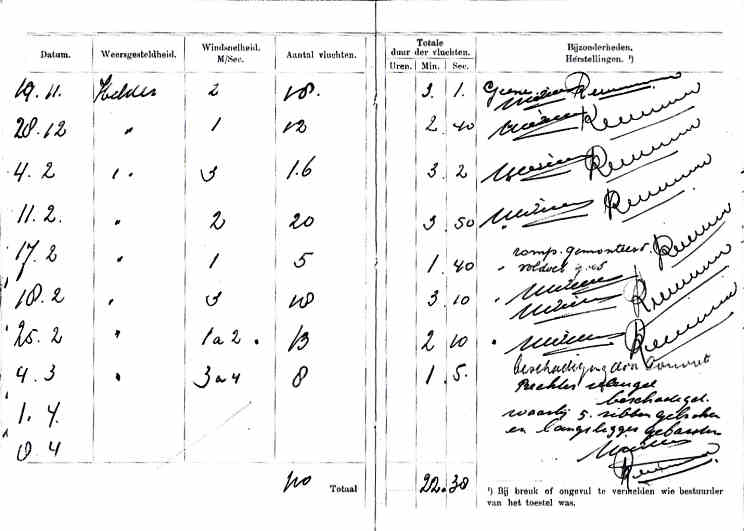 Datum. Weersgesteldheid. Windsnelheid. M/Sec. Aantal vluchten. Totale duur der vluchten. Uren. Min. Sec. Bijzonderheden. Herstellingen. ¹)
19. 11. Helder 2 18. 3. 1. Geene
28. 12 „ 1 12 2 40
4. 2 „ 3 16 3. 2
11. 2. „ 2 20 3 50
17. 2 „ 1 5 1. 40 romp. gemonteerd.
voldoet goed
18. 2 „ 3 18 3. 10 „
25. 2 „ 1 a 2. 13 2 10 „
4. 3 „ 3 a 4 8 1 5. beschadiging door
Rechter vleugel
beschadigd.
1. 4. waarbij 5. ribben gebroken
en langsligger gebarsten
8. 4
110 Totaal 22. 38
¹) Bij breuk of ongeval te vermelden wie bestuurder
van het toestel was.